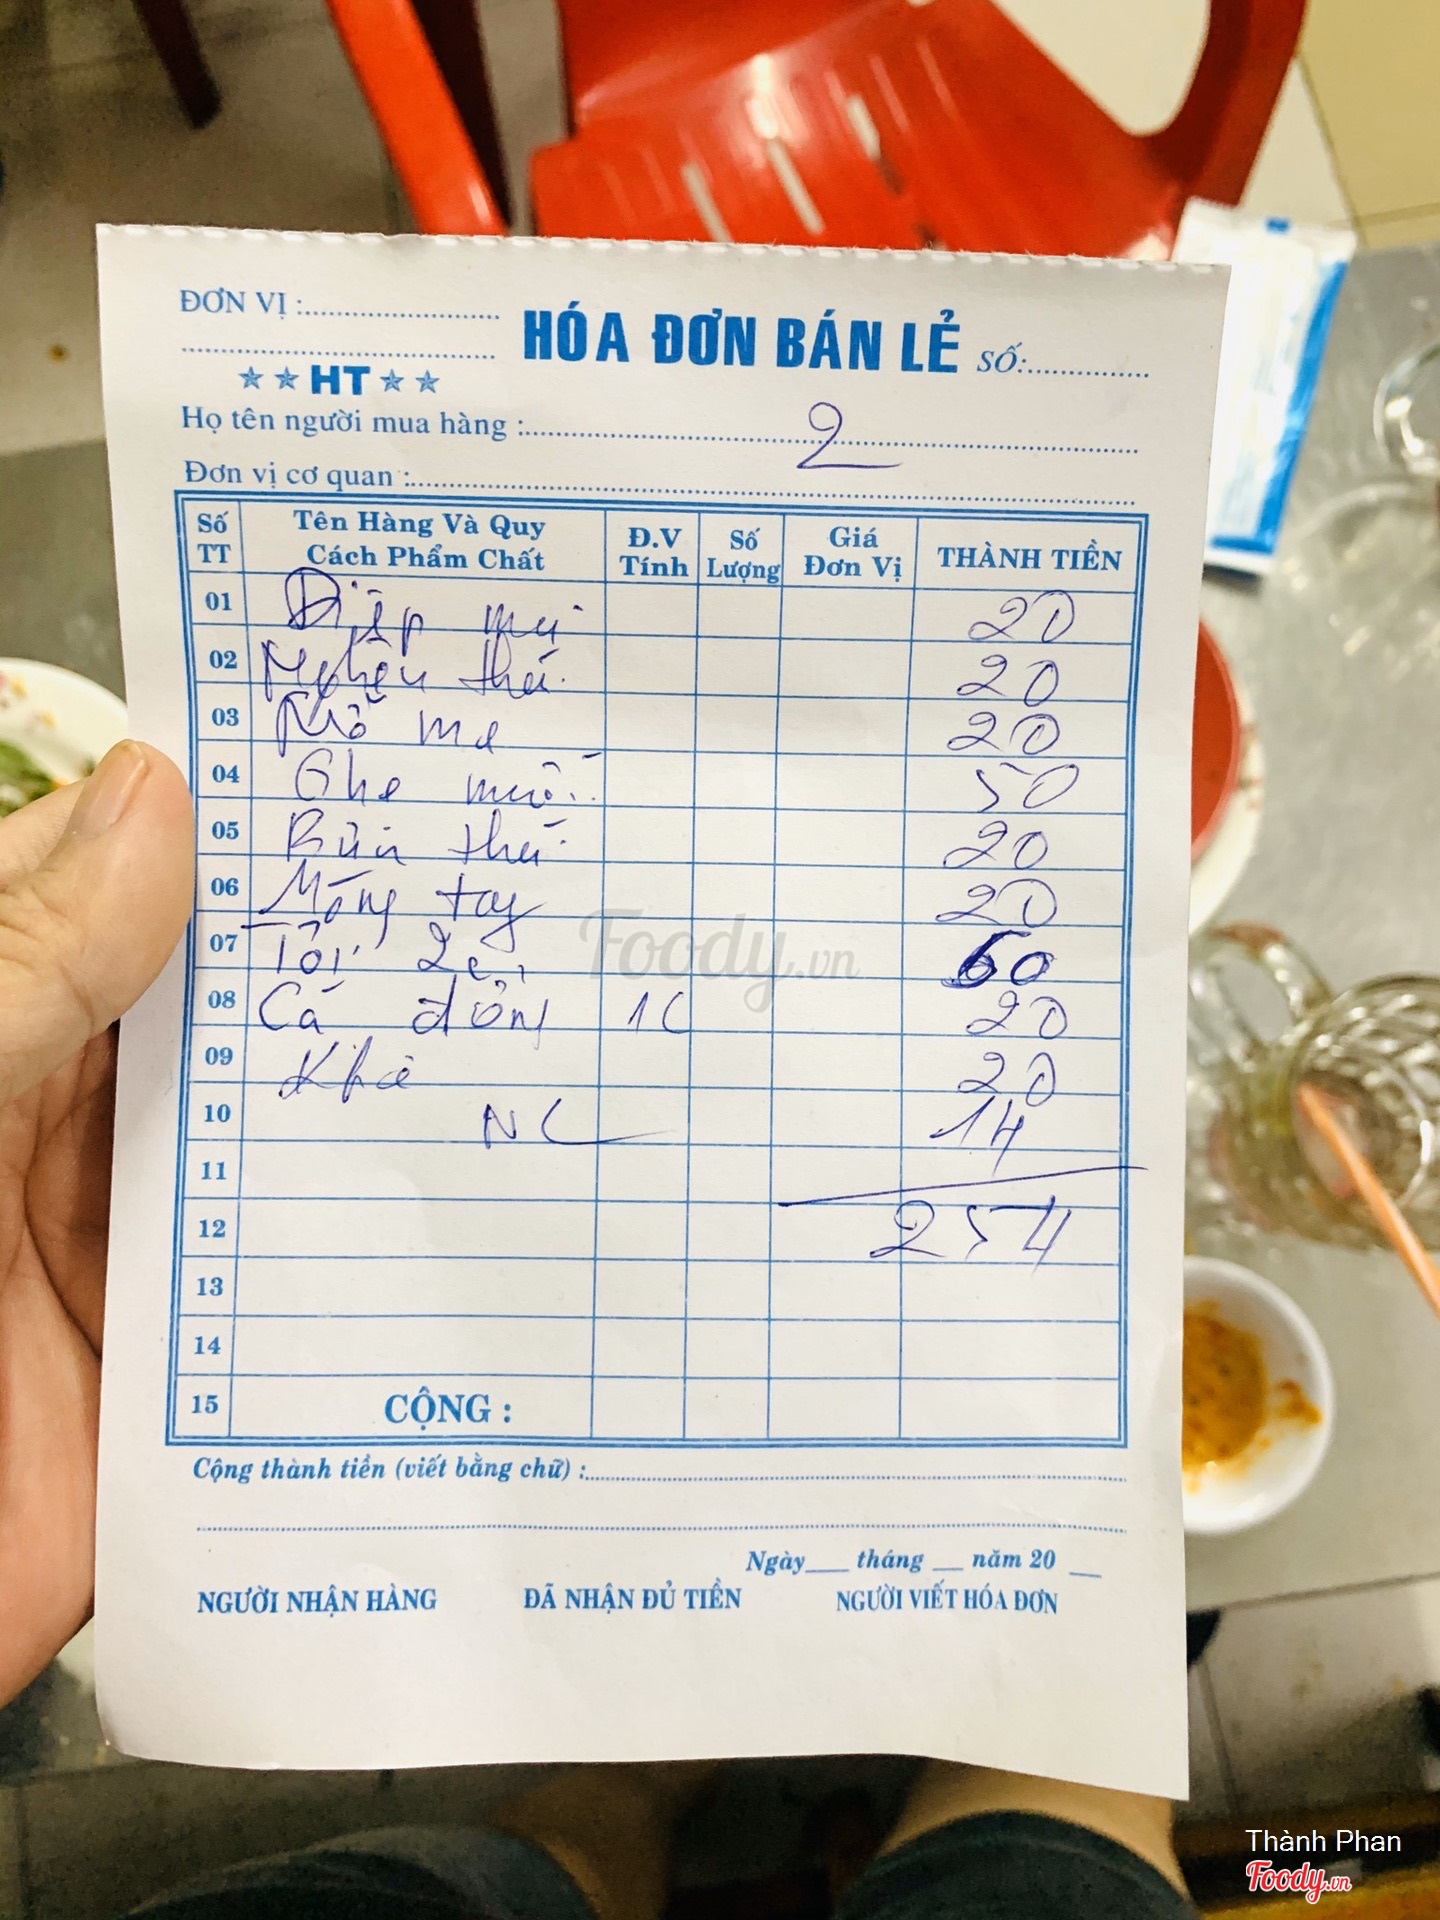 ĐƠN VỊ :
HÓA ĐƠN BÁN LẺ SỐ:
HT
Họ tên người mua hàng : 2
Đơn vị cơ quan :
Số TT Tên Hàng Và Quy Cách Phẩm Chất Đ.V Tính Số Lượng Giá Đơn Vị THÀNH TIỀN
01 Điệp 20
02 Nghêu thái 20
03 Mỡ me 20
04 Ghẹ muối 50
05 Bún thái 20
06 Móng tay 20
07 Tỏi 2c 60
08 Cá đuối 1C 20
09 Khế 20
10 NC 14
11
12 254
13
14
15 CỘNG :
Cộng thành tiền (viết bằng chữ) :
Ngày tháng năm 20
NGƯỜI NHẬN HÀNG ĐÃ NHẬN ĐỦ TIỀN NGƯỜI VIẾT HÓA ĐƠN
Foody.vn
Thành Phan
Foody.vn